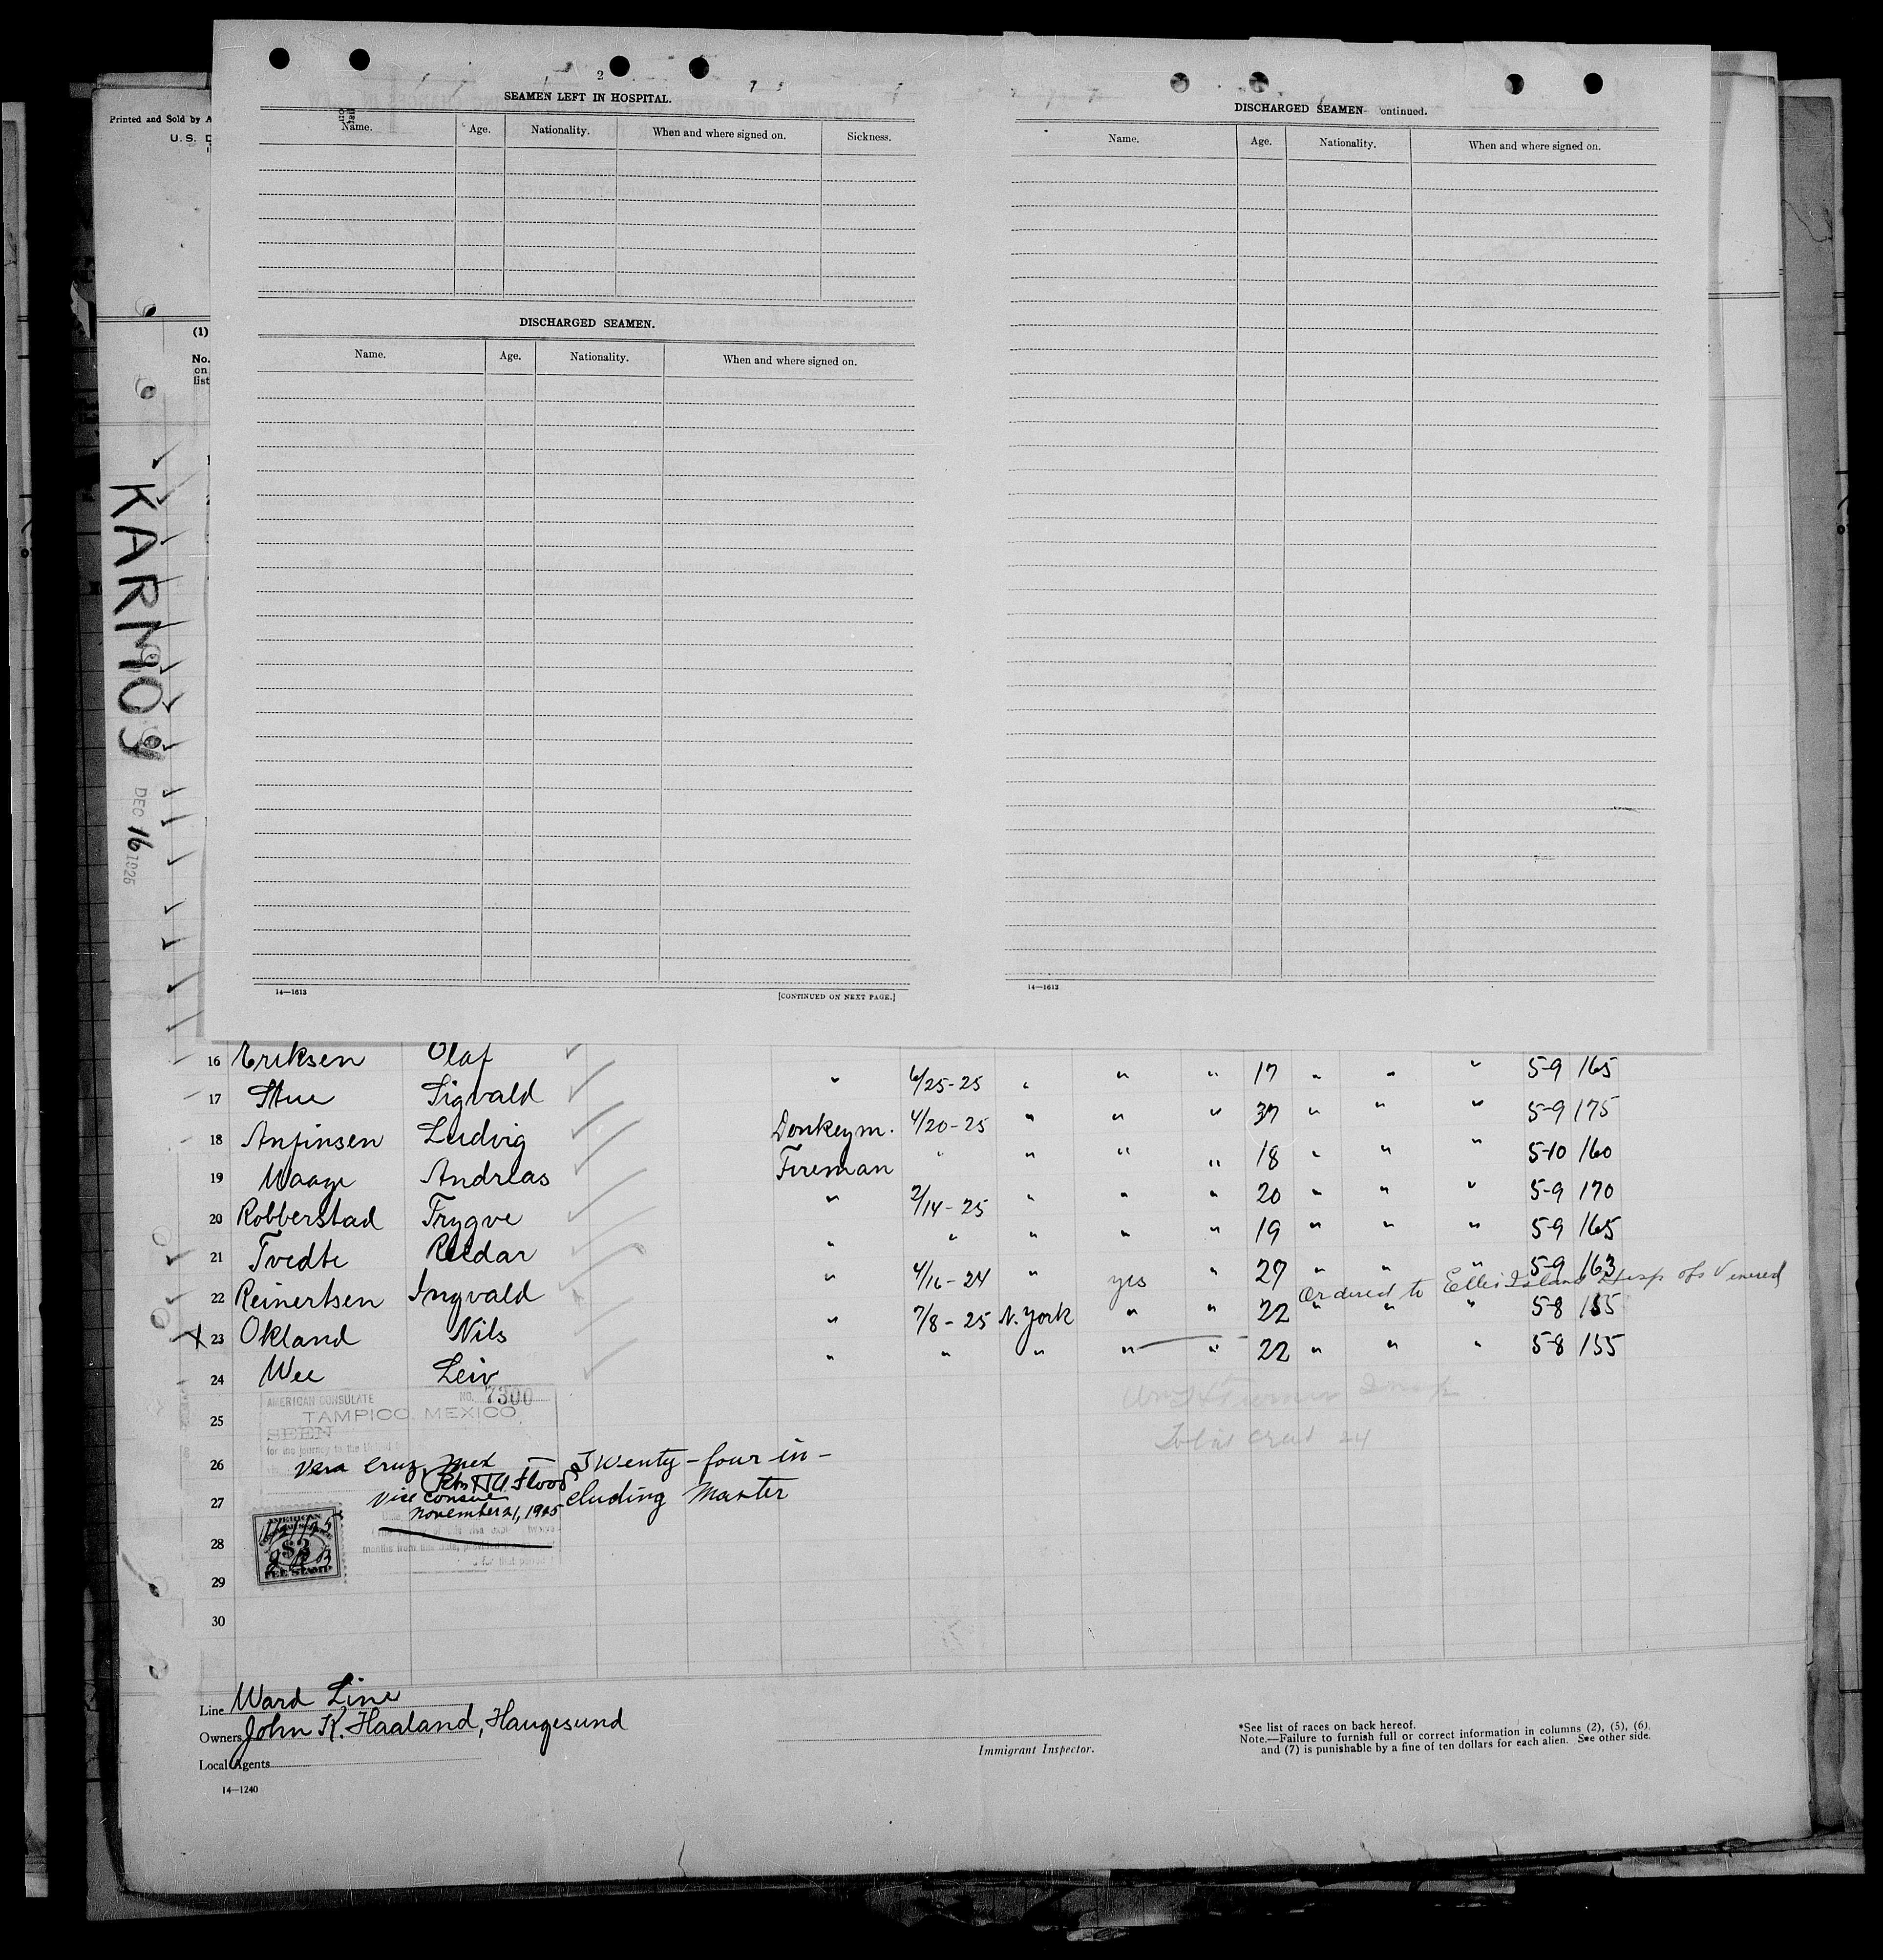 2
SEAMEN LEFT IN HOSPITAL.
Name. Age. Nationality. When and where signed on. Sickness.
DISCHARGED SEAMEN.
Name. Age. Nationality. When and where signed on.
14—1613 [CONTINUED ON NEXT PAGE.]
DISCHARGED SEAMEN ontinued.
Name. Age. Nationality. When and where signed on.
14—1613
Printed and Sold by A
U.S. D
(1)
No.
on
list
KARMOY
DEC 16 1925
16 Eriksen Olaf
17 Stue Sigvald " 6/25-25 " " " 17 " " " 5-9 165
18 Anfinsen Ludvig Donkeym. 4/20-25 " " " 37 " " " 5-9 175
19 Waage Andreas Fireman " " " " 18 " " " 5-10 160
20 Robberstad Trygve " 2/14-25 " " " 20 " " " 5-9 170
21 Tvedte Reidar " " " " " 19 " " " 5-9 165
22 Reinertsen Ingvald " 4/16-24 " yes " 27 " " " 5-9 163
Ordered to Ellis Island Hosp
X 23 Okland Nils " 7/8-25 N. York " " 22 " " " 5-8 155
24 Wee Leiv " " " " " 22 " " " 5-8 155
AMERICAN CONSULATE NO. 7300
25 TAMPICO, MEXICO
SEEN
for the journey to the United
Total crew 24
26 Vera Cruz, Mex — Twenty-four in-
27 Vice Consul cluding Master
November 21, 1925
28
months from this date, provided
for that period
AMERICAN
11/21/25
$2
FEE STAMP
29
30
Line Ward Line
Owners John K. Haaland, Haugesund
Local Agents
14—1240
Immigrant Inspector.
*See list of races on back hereof.
Note.—Failure to furnish full or correct information in columns (2), (5), (6),
and (7) is punishable by a fine of ten dollars for each alien. See other side.